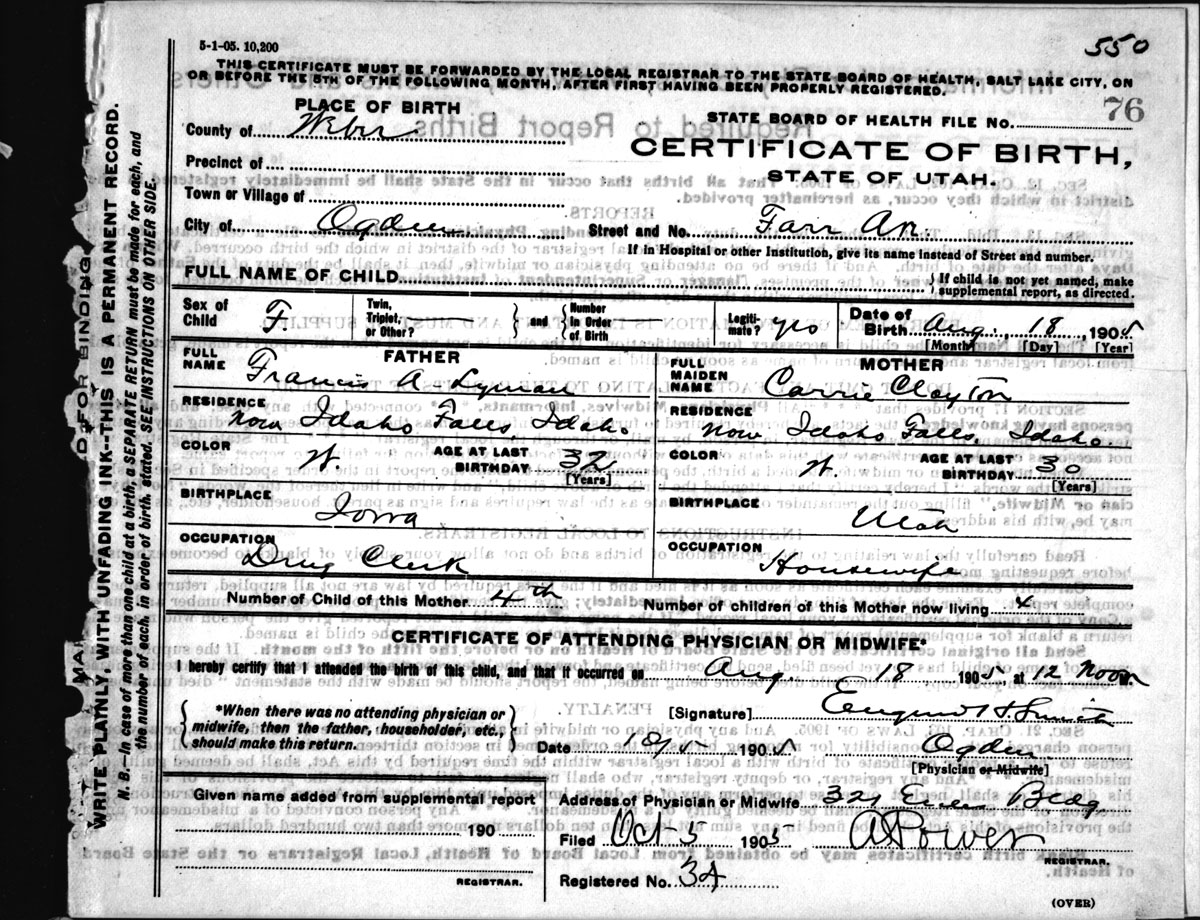 5-1-05. 10,200
550
THIS CERTIFICATE MUST BE FORWARDED BY THE LOCAL REGISTRAR TO THE STATE BOARD OF HEALTH, SALT LAKE CITY, ON
OR BEFORE THE 5TH OF THE FOLLOWING MONTH, AFTER FIRST HAVING BEEN PROPERLY REGISTERED.
PLACE OF BIRTH
STATE BOARD OF HEALTH FILE NO. 76
County of Weber
CERTIFICATE OF BIRTH,
Precinct of
STATE OF UTAH.
Town or Village of
City of Ogden Street and No. Farr Av.
If in Hospital or other Institution, give its name instead of Street and number.
FULL NAME OF CHILD { If child is not yet named, make supplemental report, as directed.
Sex of Child F Twin, Triplet, or Other? } and { Number in Order of Birth Legitimate? yes Date of Birth Aug. 18, 1905
[Month] [Day] [Year]
FATHER
FULL NAME Francis A. Lyman
RESIDENCE now Idaho Falls, Idaho
COLOR W. AGE AT LAST BIRTHDAY 32
[Years]
BIRTHPLACE Iowa
OCCUPATION Drug Clerk
MOTHER
FULL MAIDEN NAME Carrie Clayton
RESIDENCE now Idaho Falls, Idaho.
COLOR W. AGE AT LAST BIRTHDAY 30
[Years]
BIRTHPLACE Utah
OCCUPATION Housewife
Number of Child of this Mother 4th Number of children of this Mother now living 4
CERTIFICATE OF ATTENDING PHYSICIAN OR MIDWIFE*
I hereby certify that I attended the birth of this child, and that it occurred on Aug. 18 1905 at 12 Noon M.
{ *When there was no attending physician or midwife, then the father, householder, etc., should make this return. }
[Signature] Eugene H Smith
Date 1905 Ogden
[Physician or Midwife]
Given name added from supplemental report
190
REGISTRAR.
Address of Physician or Midwife 321 Bldg
Filed Oct 5 1905 A Power
REGISTRAR.
Registered No. 34
(OVER)
D FOR BINDING
WRITE PLAINLY, WITH UNFADING INK--THIS IS A PERMANENT RECORD.
N. B.—In case of more than one child at a birth, a SEPARATE RETURN must be made for each, and
the number of each, in order of birth, stated. SEE INSTRUCTIONS ON OTHER SIDE.